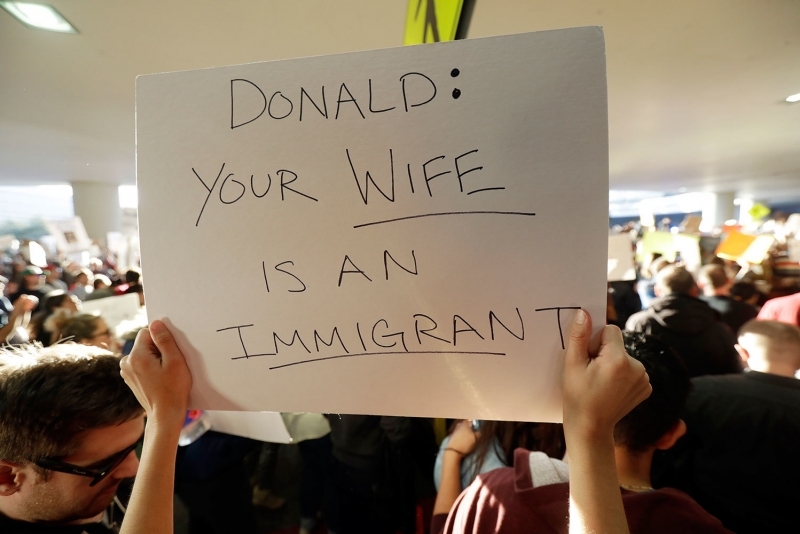 DONALD:
YOUR WIFE
IS AN
IMMIGRANT